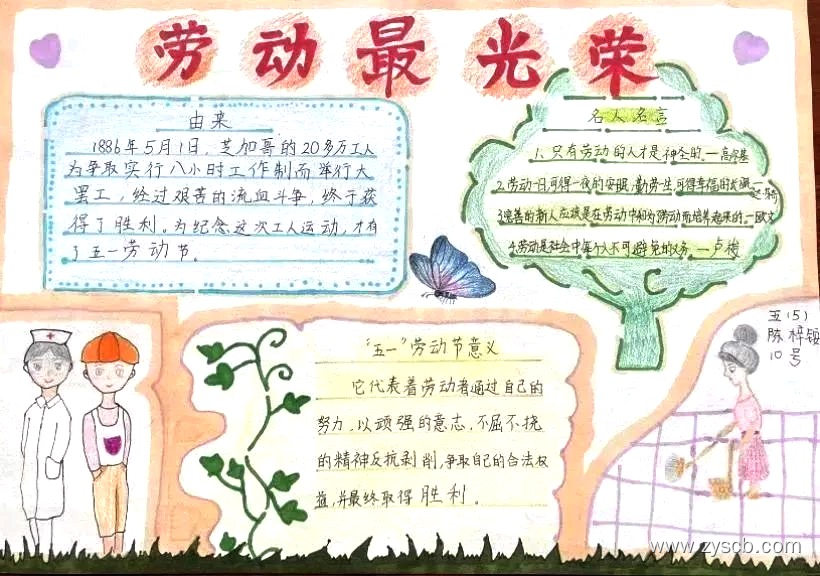 劳动最光荣
由来
1886年5月1日，芝加哥的20多万工人
为争取实行八小时工作制而举行大
罢工，经过艰苦的流血斗争，终于获
得了胜利。为纪念这次工人运动，才有
了五一劳动节。
名人名言
1、只有劳动的人才是神圣的。一高尔基
2、劳动一日可得一夜的安眠，勤劳一生，可得幸福的长眠
3、完善的新人应该是在劳动中和为劳动而培养起来的。一欧文
4、劳动是社会中每个人不可避免的义务。一卢梭
五(5)
陈梓铵
10号
"五一"劳动节意义
它代表着劳动者通过自己的
努力，以顽强的意志，不屈不挠
的精神反抗剥削，争取自己的合法权
益，并最终取得胜利。
www.zyscb.com